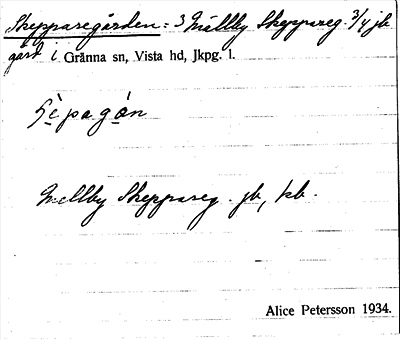 Skepparegården = 3 Mällby Skeppareg. 3/4 jb
gård i Gränna sn, Vista hd, Jkpg. l.
Mellby Skeppareg. jb, kb.
Alice Petersson 1934.